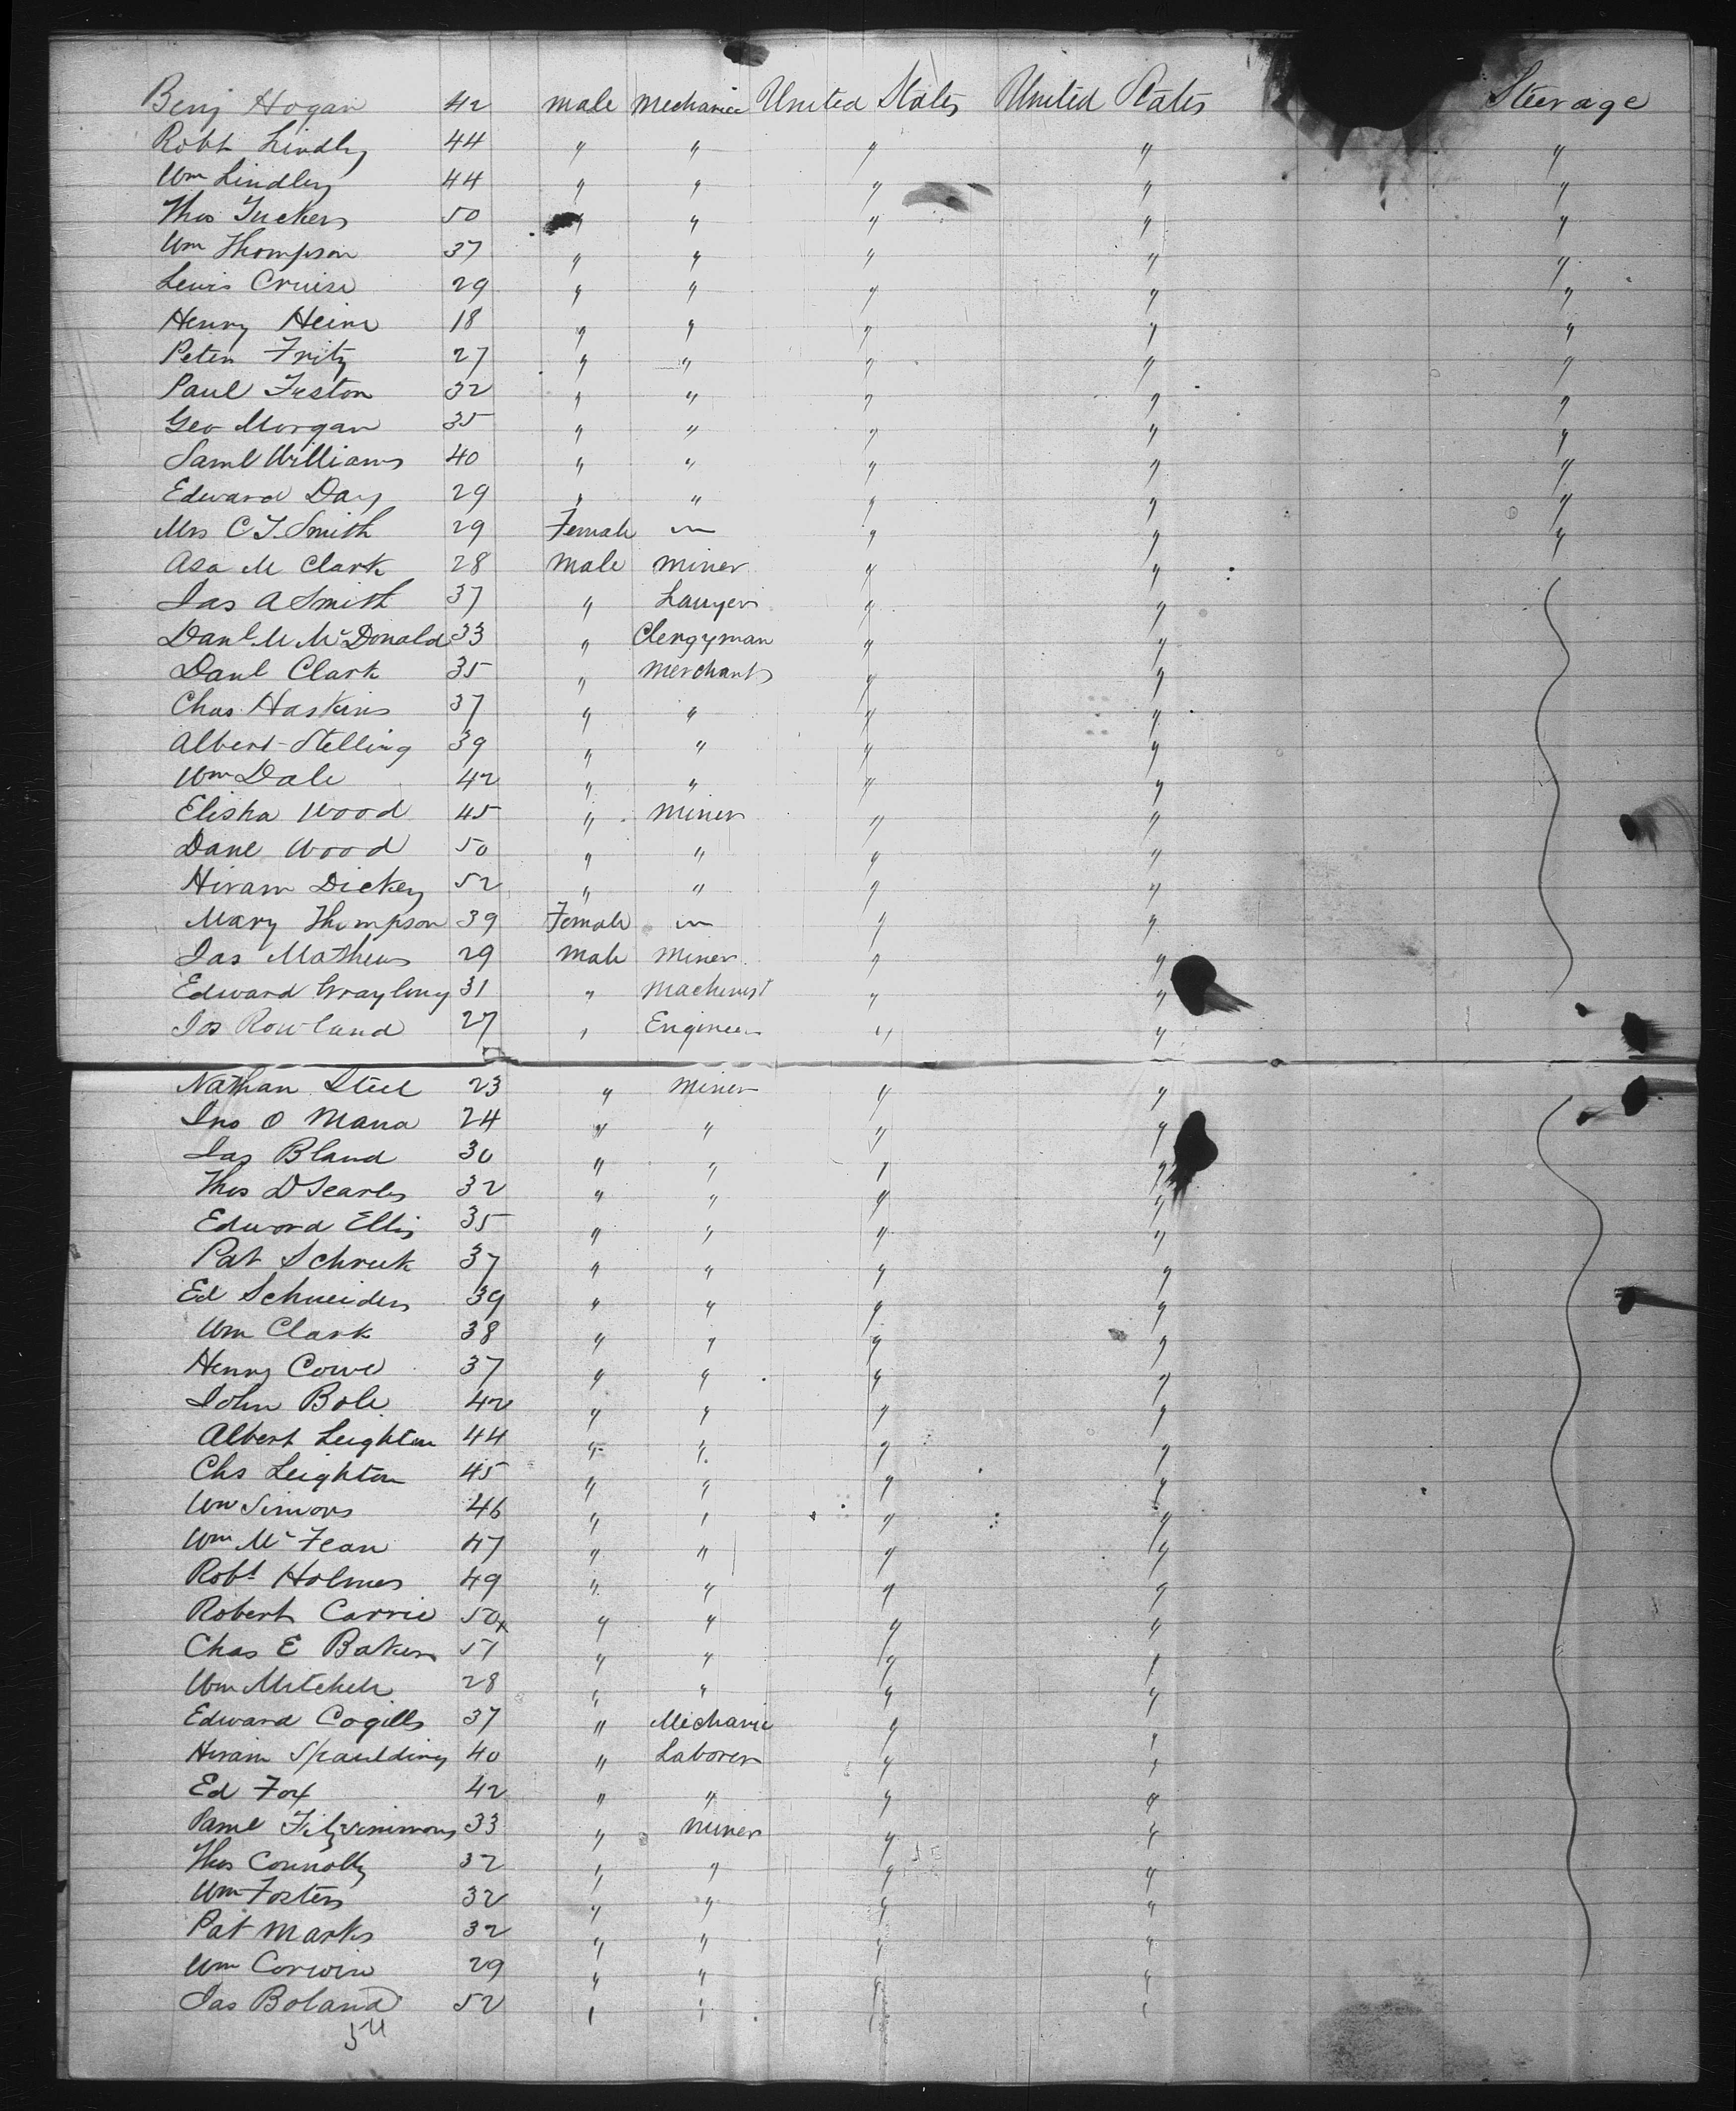 Benj Hogan 42 male Mechanic United States United States Steerage
Robt Lindley 44 " " " " "
Wm Lindley 44 " " " " "
Thos Tuckers 50 " " " " "
Wm Thompson 37 " " " " "
Lewis Cruise 29 " " " " "
Henry Heine 18 " " " " "
Peter Fritz 27 " " " " "
Paul Feston 32 " " " " "
Geo Morgan 35 " " " " "
Saml Williams 40 " " " " "
Edward Day 29 " " " " "
Mrs C T Smith 29 Female " " "
Asa M Clark 28 male miner " "
Jas A Smith 37 " Lawyer " "
Danl M McDonald 33 " Clergyman " "
Danl Clark 35 " Merchant " "
Chas Haskins 37 " " " "
Albert Stelling 39 " " " "
Wm Dale 42 " " " "
Elisha Wood 45 " Miner " "
Danl Wood 50 " " " "
Hiram Dickey 52 " " " "
Mary Thompson 39 Female " "
Jas Mathews 29 male Miner " "
Edward Grayling 31 " Machinist " "
Jos Rowland 27 " Engineer " "
Nathan Steel 23 " miner " "
Jno O Mara 24 " " " "
Jas Bland 30 " " " "
Thos D Searles 32 " " " "
Edward Ellis 35 " " " "
Pat 37 " " " "
Ed Schneider 39 " " " "
Wm Clark 38 " " " "
Henry Cowe 37 " " " "
John Bole 42 " " " "
Albert Leighton 44 " " " "
Chs Leighton 45 " " " "
Wm Simons 46 " " " "
Wm McFean 47 " " " "
Robt Holmes 49 " " " "
Robert Carrie 50 " " " "
Chas E Baker 51 " " " "
Wm Mitchell 28 " " " "
Edward Cogills 37 " Mechanic " "
Hiram Spaulding 40 " Laborer " "
Ed Fox 42 " " " "
Saml Fitzsimmons 33 " miner " "
Thos Connolly 32 " " " "
Wm Foster 32 " " " "
Pat Marks 32 " " " "
Wm Corwin 29 " " " "
Jas Boland 52 " " " "
54